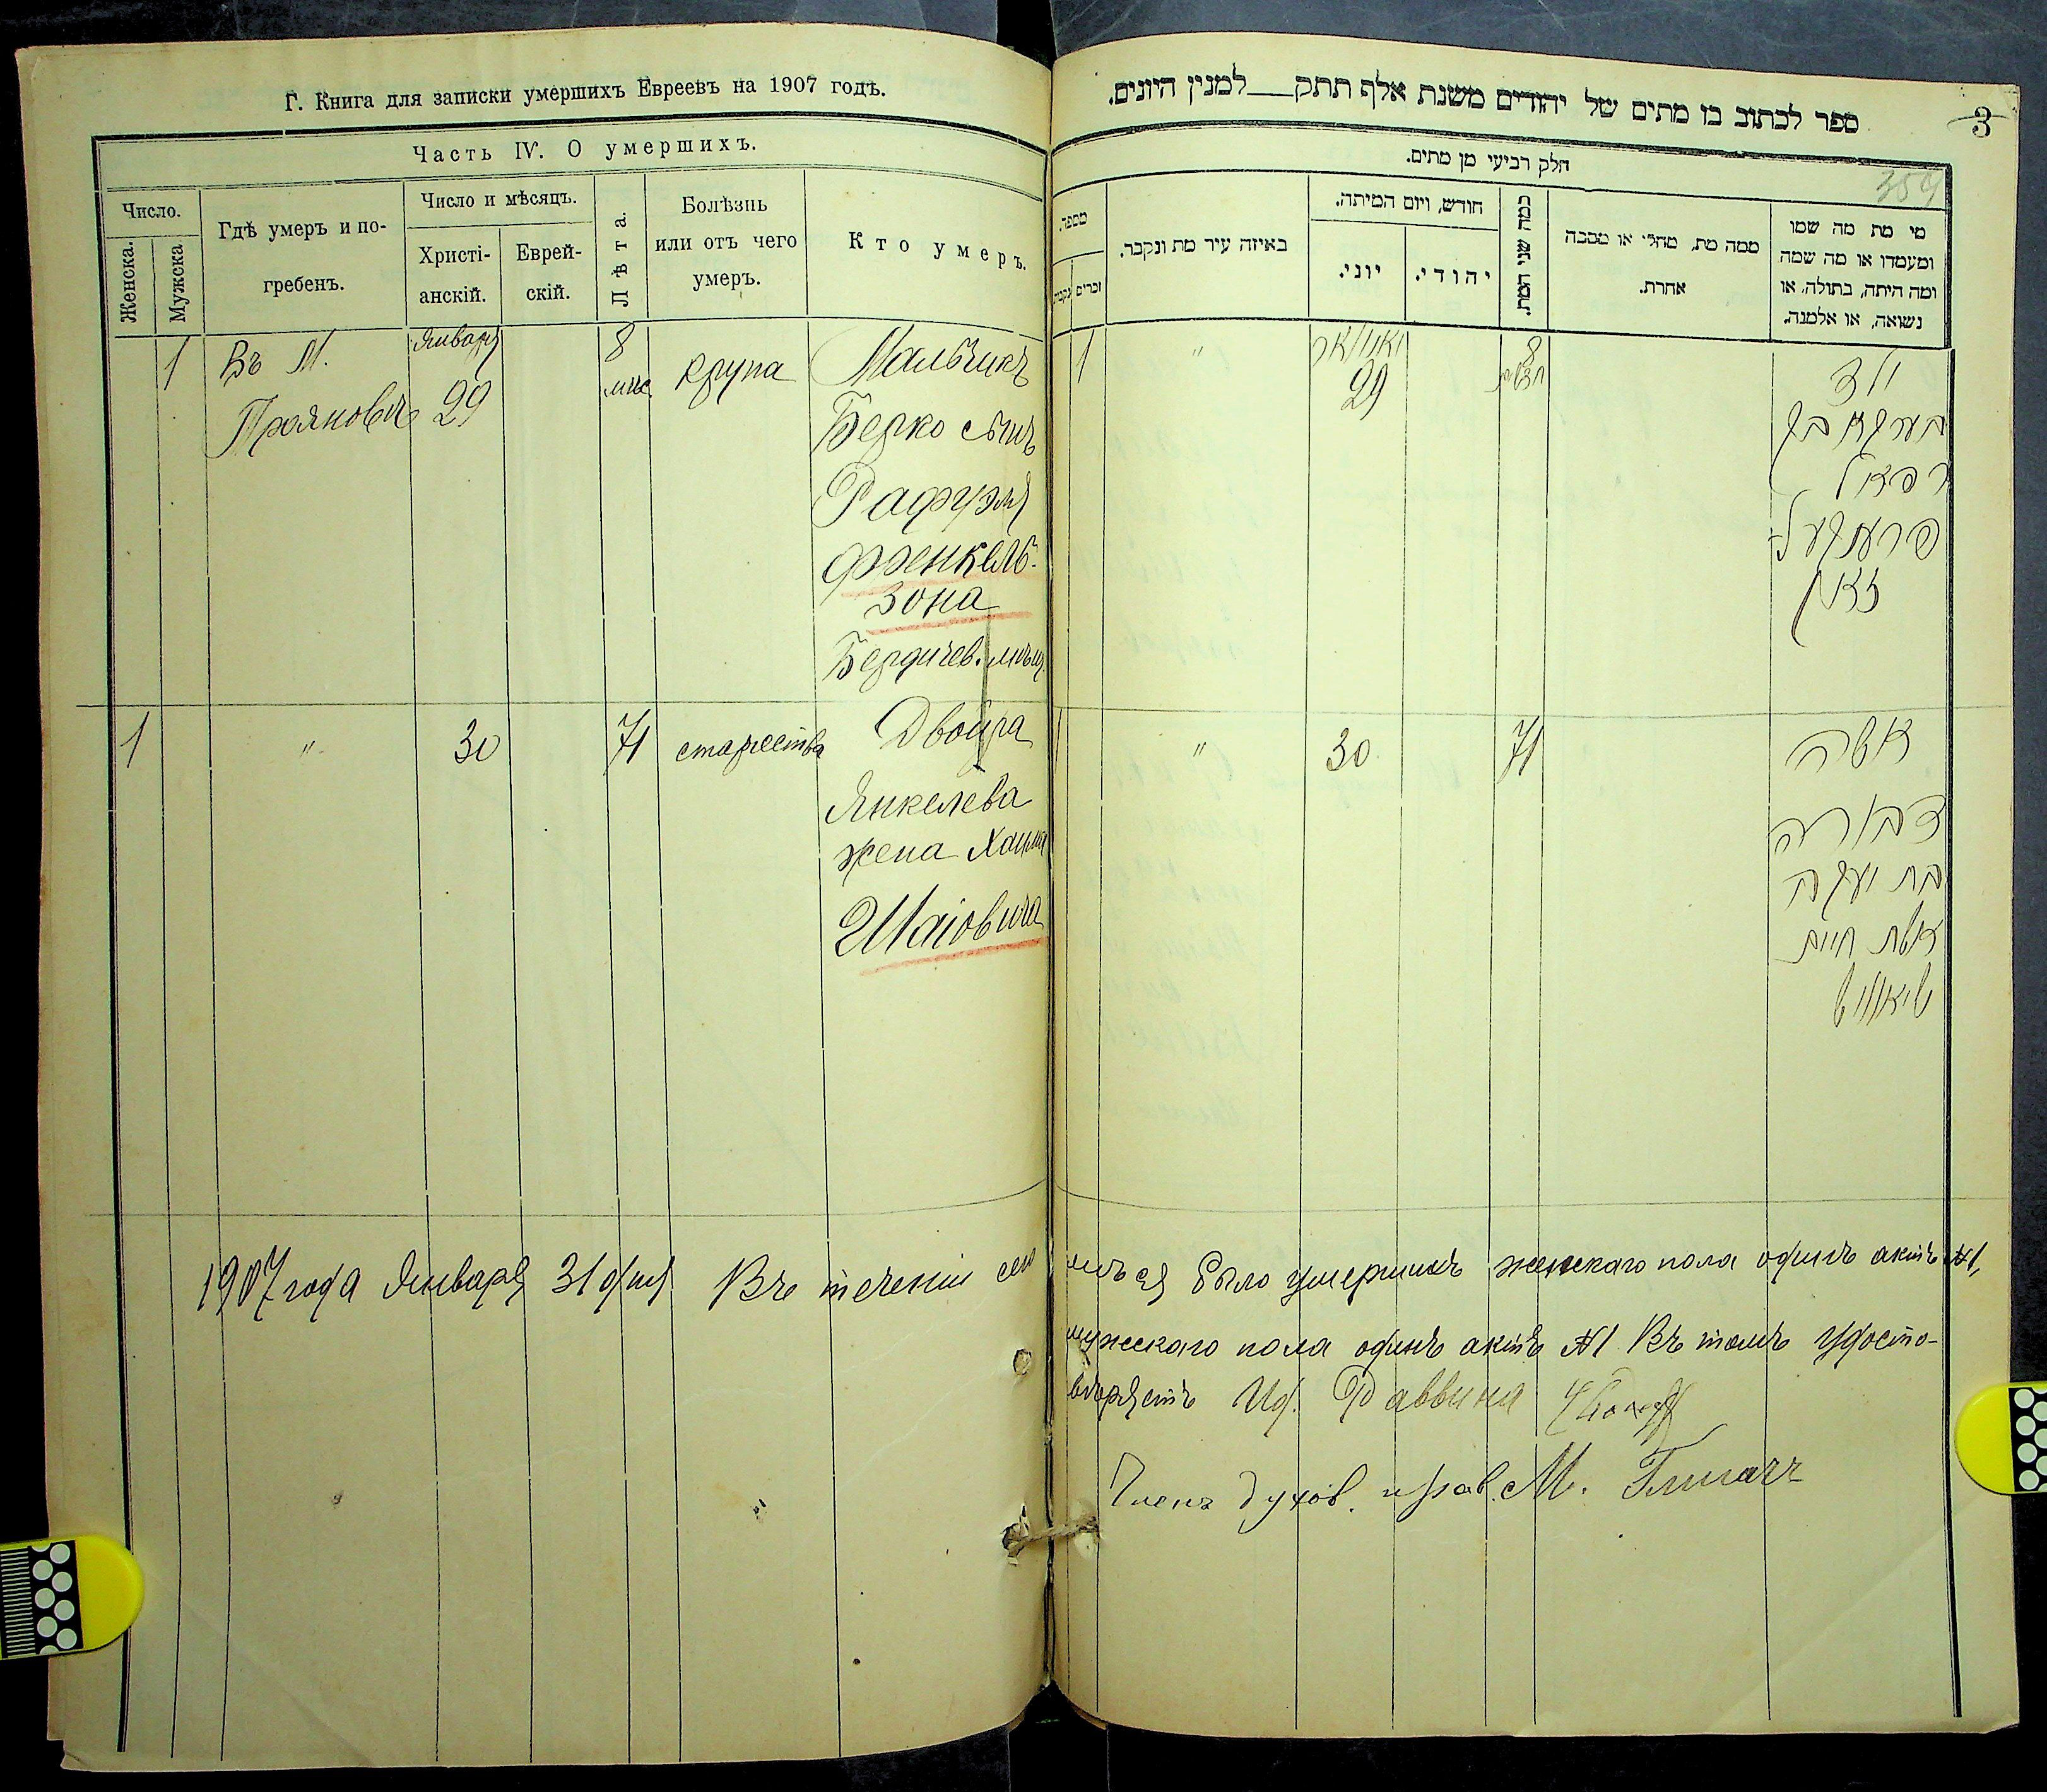 Г. Книга для записки умершихъ Евреевъ на 1907 годъ.
Часть IV. О умершихъ.
Число.
Женска.
Мужска
Гдѣ умеръ и по-
гребенъ.
Число и мѣсяцъ.
Христі-
анскій.
Еврей-
скій.
Лѣта.
Болѣзнь
или отъ чего
умеръ.
Кто умеръ.
1
Въ М.
Трояновѣ
Января
29
8
мѣс.
крупа
Мальчикъ
Берко сынъ
Рафуэля
Френкель-
зона
Бердичев. мѣщ.
1
"
30
71
старества
Двойра
Янкелева
жена Хаима
Шаіовича
ספר לכתוב בו מתים של יהודים משנת אלף תתק__למנין היונים.
3
359
חלק רביעי מן מתים.
מספר.
זכרים
נקבות
באיזה עיר מת ונקבר.
חודש, ויום המיתה.
יוני.
יהודי.
כמה שני המת.
ממה מת, מחלי או מסבה
אחרת.
מי מת מה שמו
ומעמדו או מה שמה
ומה היתה, בתולה, או
נשואה, או אלמנה.
1
"
יאנואר
29
8
חדשים
ילד
בערקא בן
רפאל
פרענקעל-
זאן
1
"
30
71
אשה
דבורה
בת יעקב
אשת חיים
שיאוויץ
1907 года Января 31 дня Въ теченіи сего мѣсяца было умершихъ женскаго пола одинъ актъ №1,
мужскаго пола одинъ актъ №1 Въ томъ удосто-
вѣряетъ Ид. Раввина
Членъ духов. прав. М.